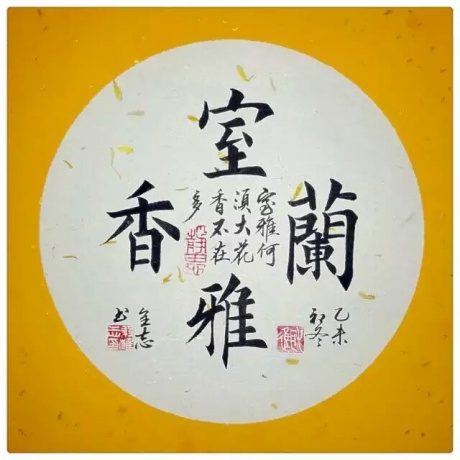 室雅
蘭香
室雅何
須大花
香不在
多
乙未
初冬
金志
书